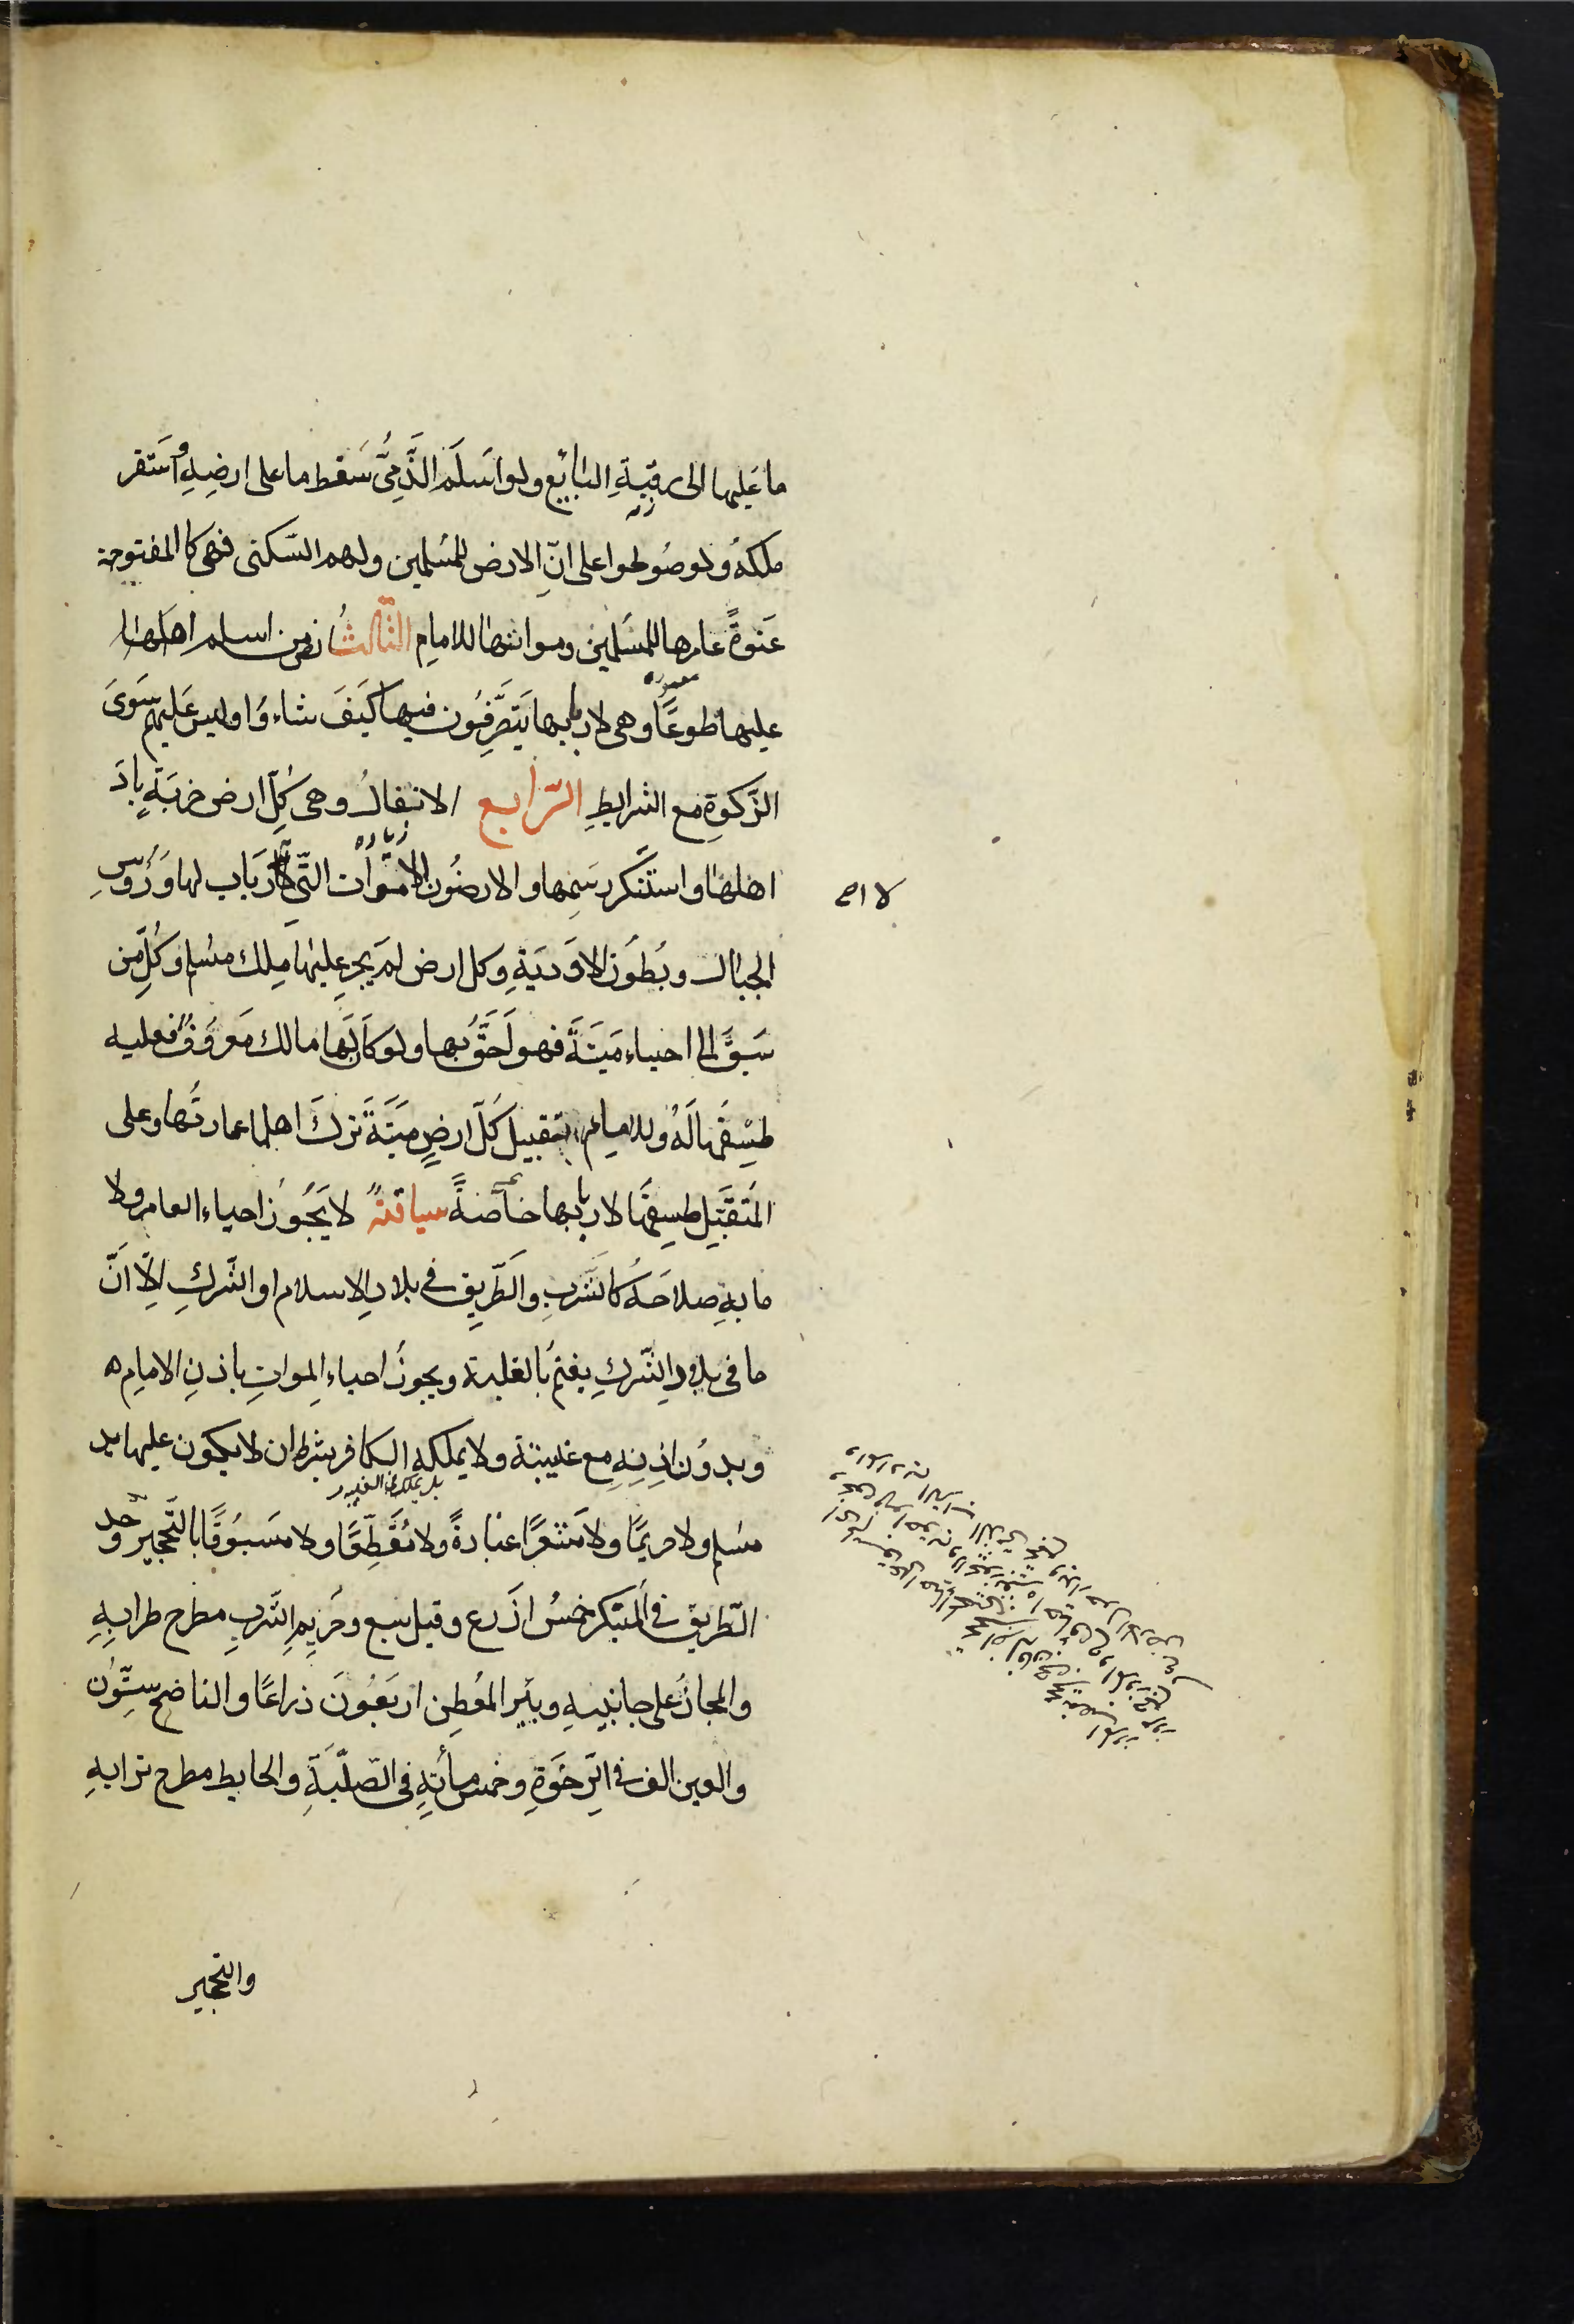 ما عَليها الى رقبةِ البَايع ولو اسَلَم الذَّمِىُّ سَقط ما على ارضِهِ واَستقر
ملكهُ ولو صُولحوا على انّ الارض للمُسلمين ولهم السّكنى فهى كالمفتوحة
عَنوةً عامرها للمسَلمين ومواتها للامامِ الثّالثُ ارض من اسلم اهلها
عليها طوعًا وهى لاربابها يَتَصَّرِفُون فيها كَيَفَ شاءوُا وليس عَليهم سَوىَ
الزّكوةِ مع الشرايطِ الرّابع الانفالُ وهى كُلّ ارض خربَةٍ بادَ
اهلها واستَنكر رسَمِها والارضُون الامَوات التّى لا ارَبَاب لها ورَؤُسِ
زيادة
لا اصح
الجبال وبُطوُن الاوَديَةِ وكل ارض لمَ يجرِ عليهَا مِلك مسُلم وكُلّ مَن
سَبقَ الى احياء ميَتَة فهو احَقُّ بها ولو كاَن لهَا مالك معَروُفُ فعليه
طسِقهَا لَهُ وللامام تقبيل كُلّ ارضٍ ميَتَة ترَكَ اهلها عمارتُها وعلى
المُتقَبّلِ طسِقهَا لاربابها خاصّةً سياقةً لا يَجُوز احياء العامر ولا
ما بهِ صلاحَهُ كالشرَبِ والطّريِق فى بلاد الاسلام او الشّركِ الّا انَّ
ما فى بلاد الشّركِ يغنمُ بالغلبة ويجوزُ احياء المواتِ باذنِ الامامِ
وبدوُن اذنِهِ مع غيبتة ولا يملكه الكافر بشرط ان لا يكون عليها يد
بل يملك فى الغيبة
مسُلم ولا حريمًا ولا مَشعَرًا عبَادةً ولا مُقَطِّعًا ولا مَسبُوقًا بالتّحجير وحد
الطّريق فى المُبتكر خمسُ اذَرع وقيل سبع وحَريمِ الشّربِ مطرح طرابِهِ
والمجازُ على جانبيهِ وبئَير المُعطِن اربَعُونَ ذراعًا والناضح ستّوُن
والعين الف فى الرّخوَةِ وخمس مأئةٍ فى الصّلبَةِ والحايط مطرح ترابهِ
والتحجير